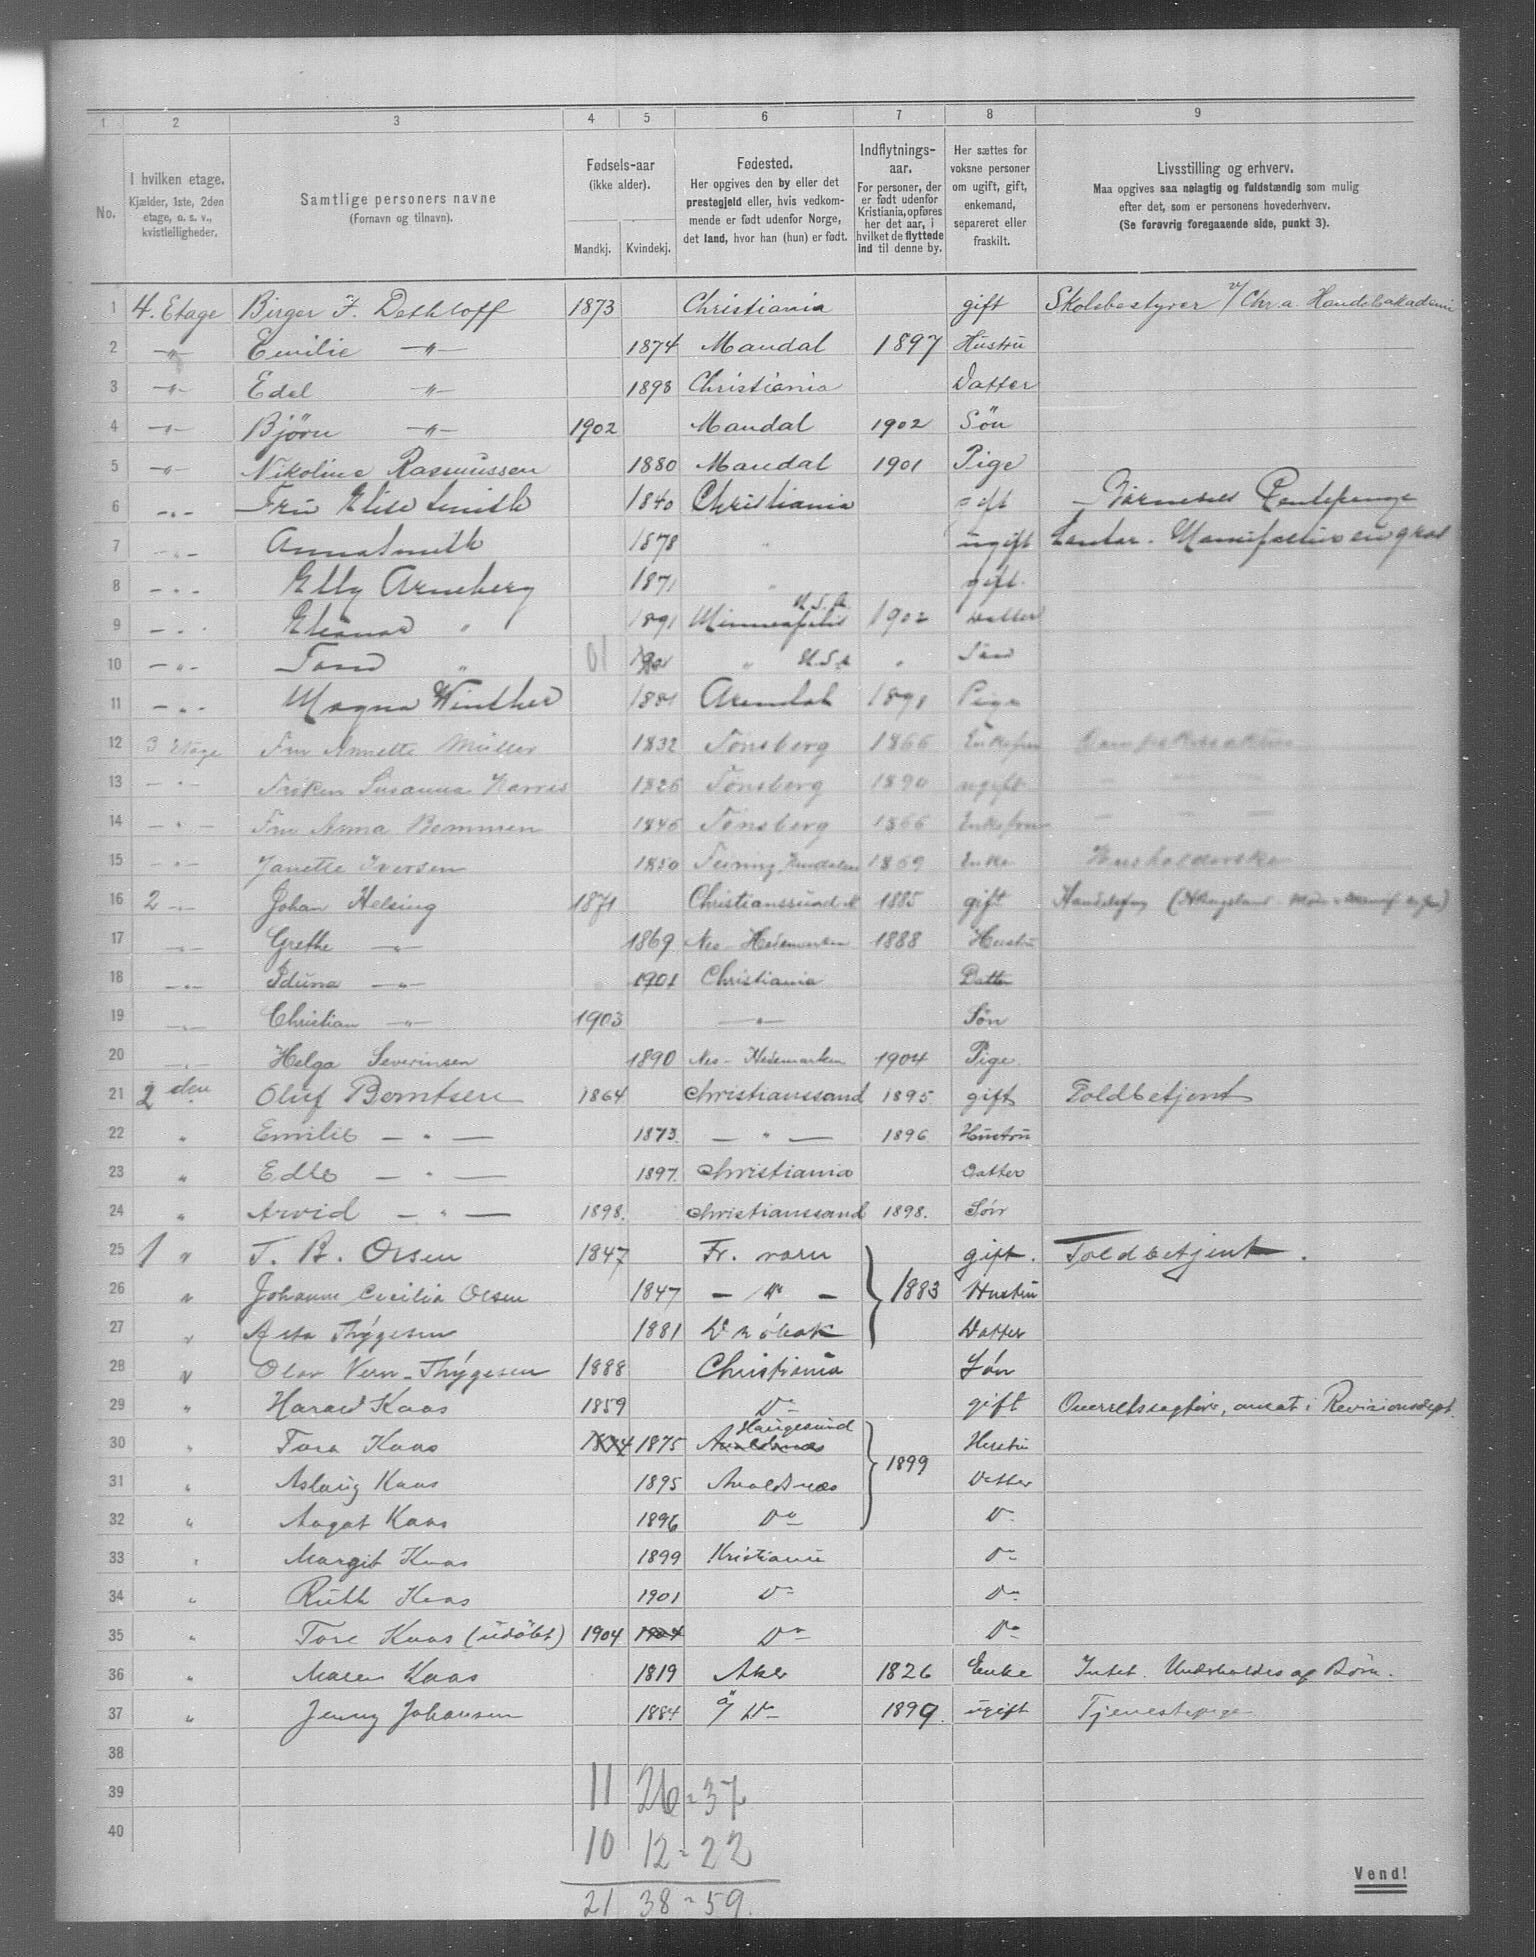 1 2 3 4 5 6 7 8 9
No.
I hvilken etage.
Kjælder, 1ste, 2den
etage, o. s. v.,
kvistleiligheder.
Samtlige personers navne
(Fornavn og tilnavn).
Fødsels-aar
(ikke alder).
Mandkj. Kvindekj.
Fødested.
Her opgives den by eller det
prestegjeld eller, hvis vedkom-
mende er født udenfor Norge,
det land, hvor han (hun) er født.
Indflytnings-
aar.
For personer, der
er født udenfor
Kristiania, opføres
her det aar, i
hvilket de flyttede
ind til denne by.
Her sættes for
voksne personer
om ugift, gift,
enkemand,
separeret eller
fraskilt.
Livsstilling og erhverv.
Maa opgives saa nøiagtig og fuldstændig som mulig
efter det, som er personens hovederhverv.
(Se forøvrig foregaaende side, punkt 3).
1 4. Etage Birger F. Dethloff 1873 Christiania gift Skolebestyrer v/ Chr.a. Handelsakademi
2 —〃— Emilie —〃— 1874 Mandal 1897 Hustru
3 —〃— Edel —〃— 1898 Christiania Datter
4 —〃— Björn —〃— 1902 Mandal 1902 Sön
5 —〃— Nikoline Rasmussen 1880 Mandal 1901 Pige
6 —〃— Fru Elise Smith 1840 Christiania gift
7 —〃— Anna Smith 1878 〃 ugift Kontor. Manufactur en gros
8 —〃— Elly Arneberg 1871 〃 gift.
9 —〃— Eleanor 〃 1891 Minneapolis U.S.A. 1902 Datter
10 —〃— 〃 01 〃 U.S.A 〃 Sön
11 —〃— Magna Winther 1881 Arendal 1891 Pige
12 3 Etage Fru Annette Müller 1832 Tönsberg 1866 Enkefru
13 —〃— Fröken Susanna 1826 Tönsberg 1890 ugift — — —
14 —〃— Fru Anna Bemmen 1846 Tönsberg 1866 Enkefru — — —
15 —〃— Janette Iversen 1850 1869 Enke Husholderske
16 2 —〃— Johan Helsing 1871 Christianssund N 1885 gift
17 —〃— Grethe —〃— 1869 Nes - Hedemarken 1888 Hustru
18 —〃— Iduna —〃— 1901 Christiania Datter
19 —〃— Christian —〃— 1903 —〃— Sön
20 —〃— Helga Severinsen 1890 Nes - Hedemarken 1904 Pige.
21 2 den Oluf Berntsen 1864 Christianssand 1895 gift Toldbetjent
22 〃 Emilie —〃— 1873. —〃— 1896. Hustru
23 〃 Edle —〃— 1897. Christiania Datter
24 〃 Arvid —〃— 1898. Christianssand 1898. Sön
25 1 〃 T. B. Olsen 1847 Fr. værn gift. Toldbetjent.
26 〃 Johanne Cecilia Olsen 1847 —〃— 1883 Hustru
27 〃 Asta Thygesen 1881 Dröbak Datter
28 〃 Olav Vern-Thygesen 1888 Christiania Sön
29 〃 Harald Kaas 1859 Do gift Overretssagförer, ansat i Revisionsdept.
30 〃 Tora Kaas 1874 1875 Avaldsnæs Haugesund Hustru
31 〃 Aslaug Kaas 1895 Avaldsnæs 1899 Datter
32 〃 Aagot Kaas 1896 Do Do
33 〃 Margit Kaas 1899 Kristiania Do
34 〃 Ruth Kaas 1901 Do Do
35 〃 Tore Kaas (udöbt) 1904 1904 Do Do
36 〃 Maren Kaas 1819 Aker 1826 Enke Intet. Underholdes af Börn.
37 〃 Jenny Johansen 1884 Do 1899. ugift Tjenestepige
38
39 11 26 = 37
40 10 12 = 22
21 38 = 59.
Vend!